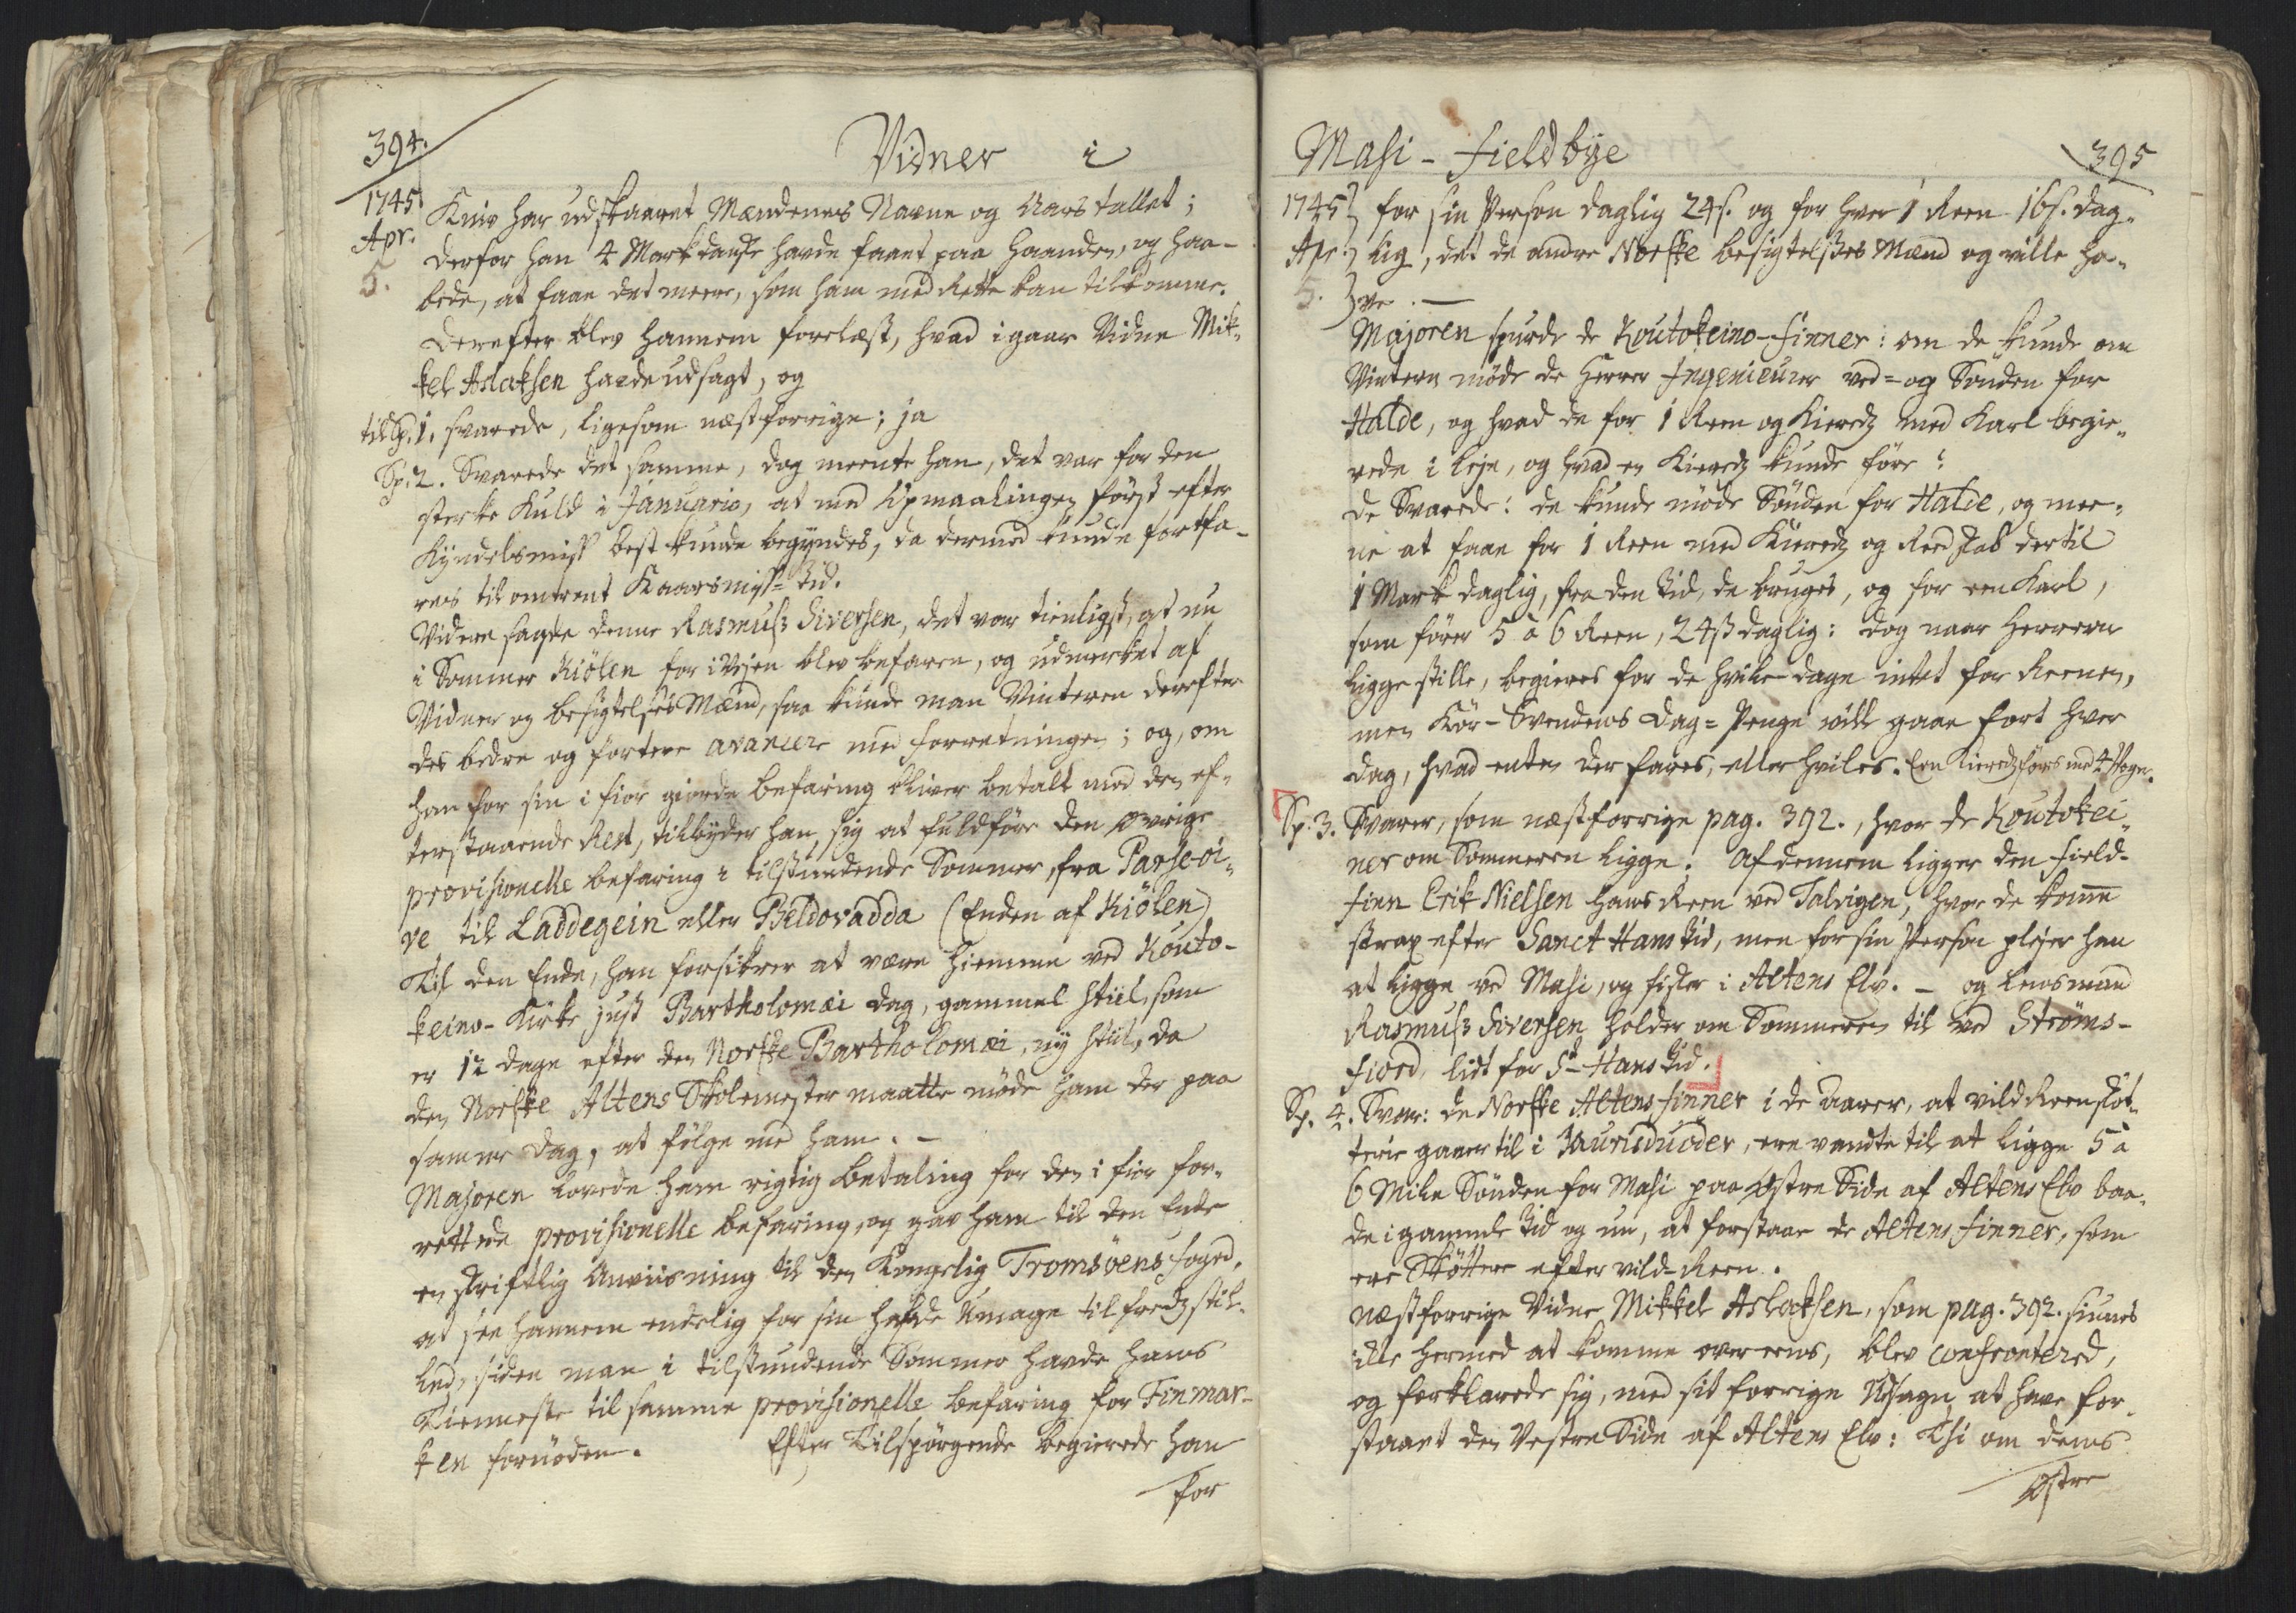 394.
Vidner i
1745
Apr.
5.
Kniv har udskaaret Mændenes Navne og Aarstallet;
derfor han 4 Mark danske havde faaet paa Haanden, og haa-
bede, at faae det meere, som ham med Rette kan tilkomme.
Derefter blev hannem forelæst, hvad igaar Vidne Mik-
kel Aslaksen havde udsagt, og
til Sp. 1. svarede, ligesom næstforrige; ja
Sp: 2. Svarede det samme, dog meente han, det var for den
sterke Kuld i Januario, at med Opmaalingen först efter
Kyndelsmiss best kunde begyndes, da dermed kunde fortfa-
res til omtrent Kaarsmiss-Tid.
Videre sagde denne Rasmuss Iversen, det var tienligst, at nu
i Sommer Kiölen for i Vejen blev befaren, og udmerket af
Vidner og besigtelses Mænd, saa kunde man Vinteren derefter
des bedre og fortere avancere med forretningen; og, om
han for sin i fior giorde befaring bliver betalt med den ef-
terstaaende Rest, tilbyder han sig at fuldföre den övrige
provisionelle befaring i tilstundende Sommer, fra Parse-oi-
ve til Laddegein eller Beldovadda (Enden af Kiölen)
Til den Ende, han forsikrer at være hiemme ved Kouto-
keino-Kirke just Bartholomæi dag, gammel Stiil, som
er 12 dage efter den Norske Bartholomæi, ny Stiil, da
den Norske Altens Skolemester maatte möde ham der paa
samme dag, at fölge med ham. -
Majoren lovede ham rigtig betaling for den i fior for-
rettede provisionelle befaring, og gav ham til den Ende
en skriftlig Anviisning til den Kongelig Tromsöens foged,
at see hannem endelig for sin hafde Umage tilfredzstil-
led, siden man i tilstundende Sommer havde hans
Tienneste til samme provisionelle befaring for Finmar-
ken fornöden. Efter Tilspörgende begierede han
for
Masi - Fieldbÿe
395
1745
Apr:
5.
for sin Person daglig 24 s. og for hver 1 Reen 16 s. dag-
lig, det de andre Norske besigtelsses Mænd og ville ha-
ve. -
Majoren spurde de Koutokeino-Finner: om de kunde om
Vintern möde de Herrer Ingenieurer ved- og Sönden for
Halde, og hvad de for 1 Reen og Kieredz med Karl begie-
rede i leje, og hvad en Kieredz kunde före?
de Svarede: de kunde möde Sönden for Halde, og mee-
ne at faae for 1 Reen med Kieredz og Redskab dertil
1 Mark daglig, fra den Tid, de bruges, og for een Karl,
som förer 5 à 6 Reen, 24 ss daglig: dog naar Herrerne
ligge stille, begieres for de hvile-dage intet for Reenen,
men Kör-Svendens Dag-Penge vill gaae fort hver
dag, hvad enten der fares, eller hviles. Een Kieredz föres med 4 Voger.
Sp: 3. Svarer, som næstforrige pag. 392., hvor de Koutokei-
ner om Sommeren ligge. Af dennem ligger den Field-
finn Erik Nielsen hans Reen ved Talvigen, hvor de komme
strax efter Sanct Hans Tid, men for sin Person plejer han
at ligge ved Masi, og fisker i Altens Elv. - og Lensmand
Rasmuss Iversen holder om Sommeren til ved Ströms-
fiord, lidt for St Hans Tid.
Sp. 4. Svar: de Norske Altens finner i de Aarer, at vild Reenskøt-
terie gaaer til i Jaurisduöder, ere vandte til at ligge 5 à
6 Mile Sönden for Masi paa østre Side af Altens Elv baa-
de i gammel Tid og nu, at forstaae de Altens finner, som
ere Skötter efter vild-Reen.
næstforrige Vidne Mikkel Aslaksen, som pag. 392. siunes
ikke hermed at komme overeens, blev confrontered,
og forklarede sig, med sit forrige Udsagn at have for-
staaet den Vestre Side af Altens Elv: Thi om dens
Østre